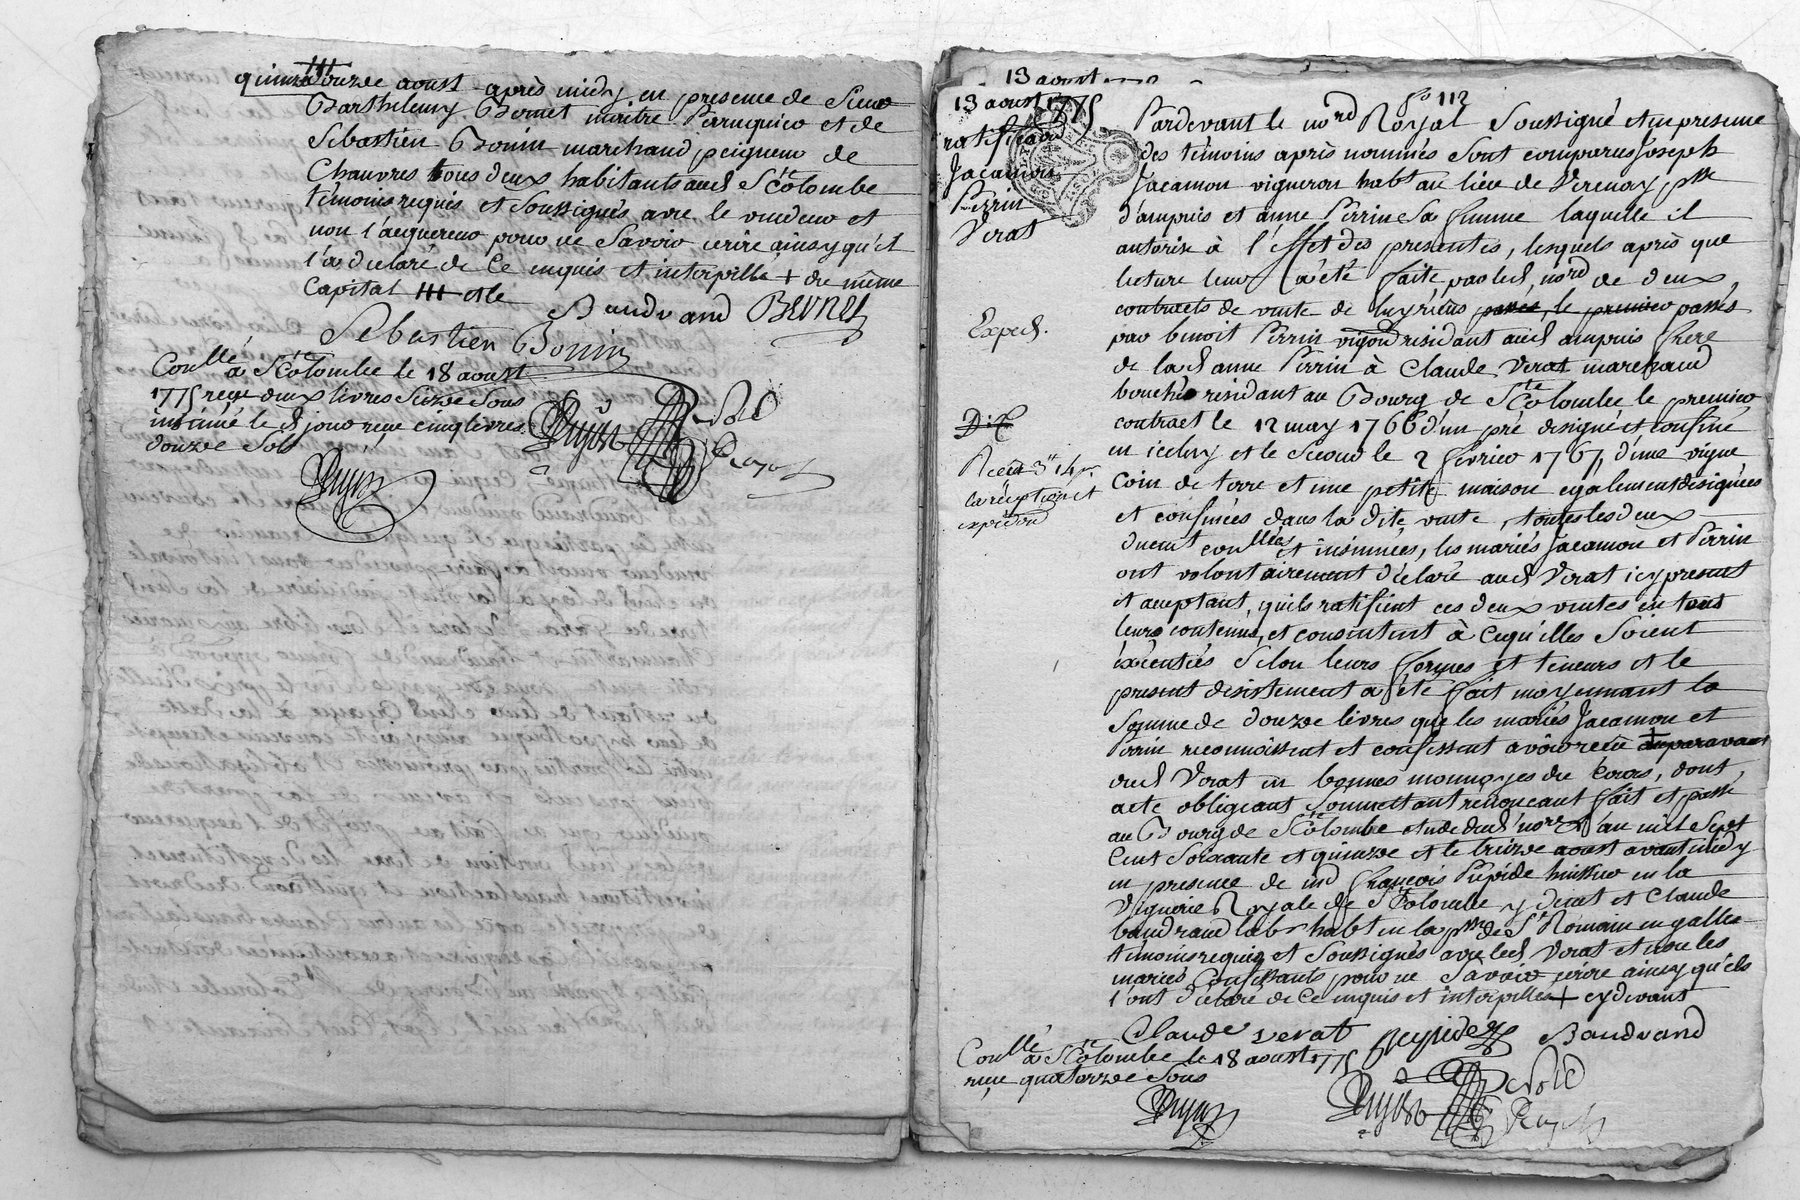 quinze douze aoust après midy en presence de Sieur
Barthelemy Bernet maitre Perruquier et de
Sebastien Bonin marchand peigneur de
Chanvres tous deux habitants aud. Ste Colombe
témoins requis et soussignés avec le vendeur et
non l'acquereur pour ne savoir ecrire ainsy qu'il
l'a declaré de ce enquis et interpellé + du même
Capital et le
Baudrand BERNET
Sebastien Bonin
Conllé à Ste Colombe le 18 aoust
1775 reçu deux livres seize sous
insinué le d. jour reçu cinq livres
douze sols
13 aoust
13 aoust 1775
ratification
Jacamon
Perrin
Verat
Exped.
fo 112
Pardevant le nord Royal Soussigné et en presence
des témoins après nommés sont comparus Joseph
Jacamon vigneron habt au lieu de Verenay psse
d'ampuis et anne Perrin sa femme laquelle il
autorise à l'effet des presentes, lesquels après que
lecture leur a été faite par led. nord de deux
contracts de vente de luy reçus le premier passés
par benoit Perrin vigneron residant aud. ampuis frere
de lad. anne Perrin à Claude Verat marchand
boucher residant au Bourg de Ste Colombe le premier
contract le 12 may 1766 d'un pré designé et confiné
en iceluy et le second le 2 fevrier 1767, d'une vigne
coin de terre et une petite maison egalement designées
et confinées dans la dite vente, toutes les deux
duement conllées et insinuées, les mariés Jacamon et Perrin
ont volontairement déclaré aud. Verat icy present
et acceptant, qu'ils ratifient ces deux ventes en tout
leurs contenus, et consentent à cequ'elles soient
éxécutées selon leurs formes et teneurs et le
present desistement a été fait moyennant la
somme de douze livres que les mariés Jacamon et
Perrin reconnoissent et confessent avoir reçu + auparavant
dud. Verat en bonnes monnoyes de cours, dont
acte obligeant soumettant renonçant fait et passé
au Bourg de Ste Colombe etude dud. nore l'an mil sept
cent soixante et quinze et le treize aoust avant midy
en presence de me François Prepide huissier en la
Viguerie Royale de Ste Colombe y demt et Claude
baudrand labr habt en la psse de St Romain en galles
témoins requis et soussignés avec led. Verat et non les
mariés confessants pour ne savoir ecrire ainsy qu'ils
l'ont declaré de ce enquis et interpellés + cy devant
Claude verat Baudrand
Conllé à Ste Colombe le 18 aoust 1775
reçu quatorze sous